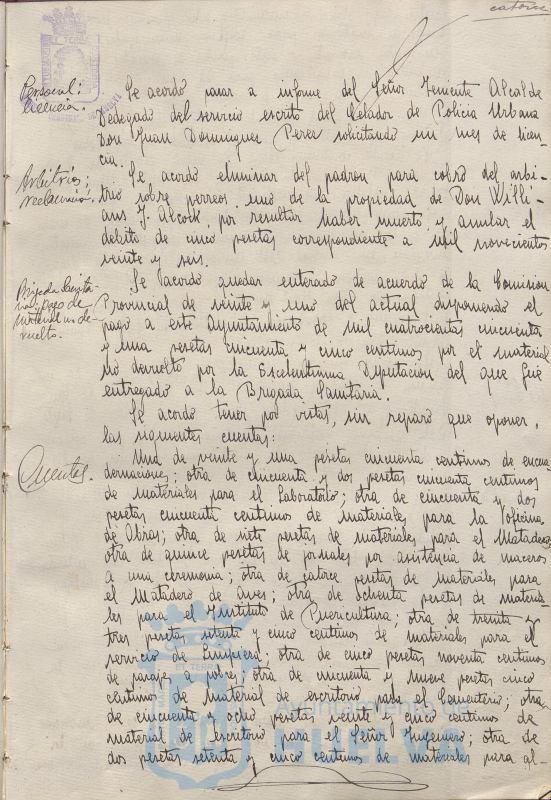 catorce
Personal:
licencia.
Se acordó pasar a informe del Señor Teniente Alcalde
Delegado del servicio escrito del Celador de Policia Urbana
Don Juan Dominguez Perez solicitando un mes de licen-
cia.
Arbitrios;
reclamación.
Se acordó eliminar del padron para cobro del arbi-
trio sobre perros, uno de la propiedad de Don Willi-
ans J. Alcock, por resultar haber muerto, y anular el
debito de cinco pesetas correspondiente a mil novecientos
veinte y seis.
Brigada Sanita-
ria; pago de
material no de-
vuelto.
Se acordó quedar enterado de acuerdo de la Comision
Provincial de veinte y uno del actual disponiendo el
pago a este Ayuntamiento de mil cuatrocientas cincuenta
y una pesetas cincuenta y cinco centimos por el material
no devuelto por la Excelentisima Diputacion del que fué
entregado a la Brigada Sanitaria.
Se acordó tener por vistas, sin reparo que oponer,
las siguientes cuentas:
Cuentas.
Una de veinte y una pesetas cincuenta centimos de encua-
dernaciones; otra de cincuenta y dos pesetas cincuenta centimos
de materiales para el Laboratorio; otra de cincuenta y dos
pesetas cincuenta centimos de materiales para la oficina
de Obras; otra de siete pesetas de materiales para el Matadero;
otra de quince pesetas de jornales por asistencia de maceros
a una ceremonia; otra de catorce pesetas de materiales para
el Matadero de aves; otra de ochenta pesetas de materia-
les para el Instituto de Puericultura; otra de treinta y
tres pesetas setenta y cinco centimos de materiales para el
servicio de Limpieza; otra de cinco pesetas noventa centimos
de pasajes a pobres; otra de cincuenta y nueve pesetas cinco
centimos de material de escritorio para el Cementerio; otra
de cincuenta y ocho pesetas veinte y cinco centimos de
material de escritorio para el Señor Ingeniero; otra de
dos pesetas setenta y cinco centimos de materiales para al-
Ayuntamiento de
HUELVA